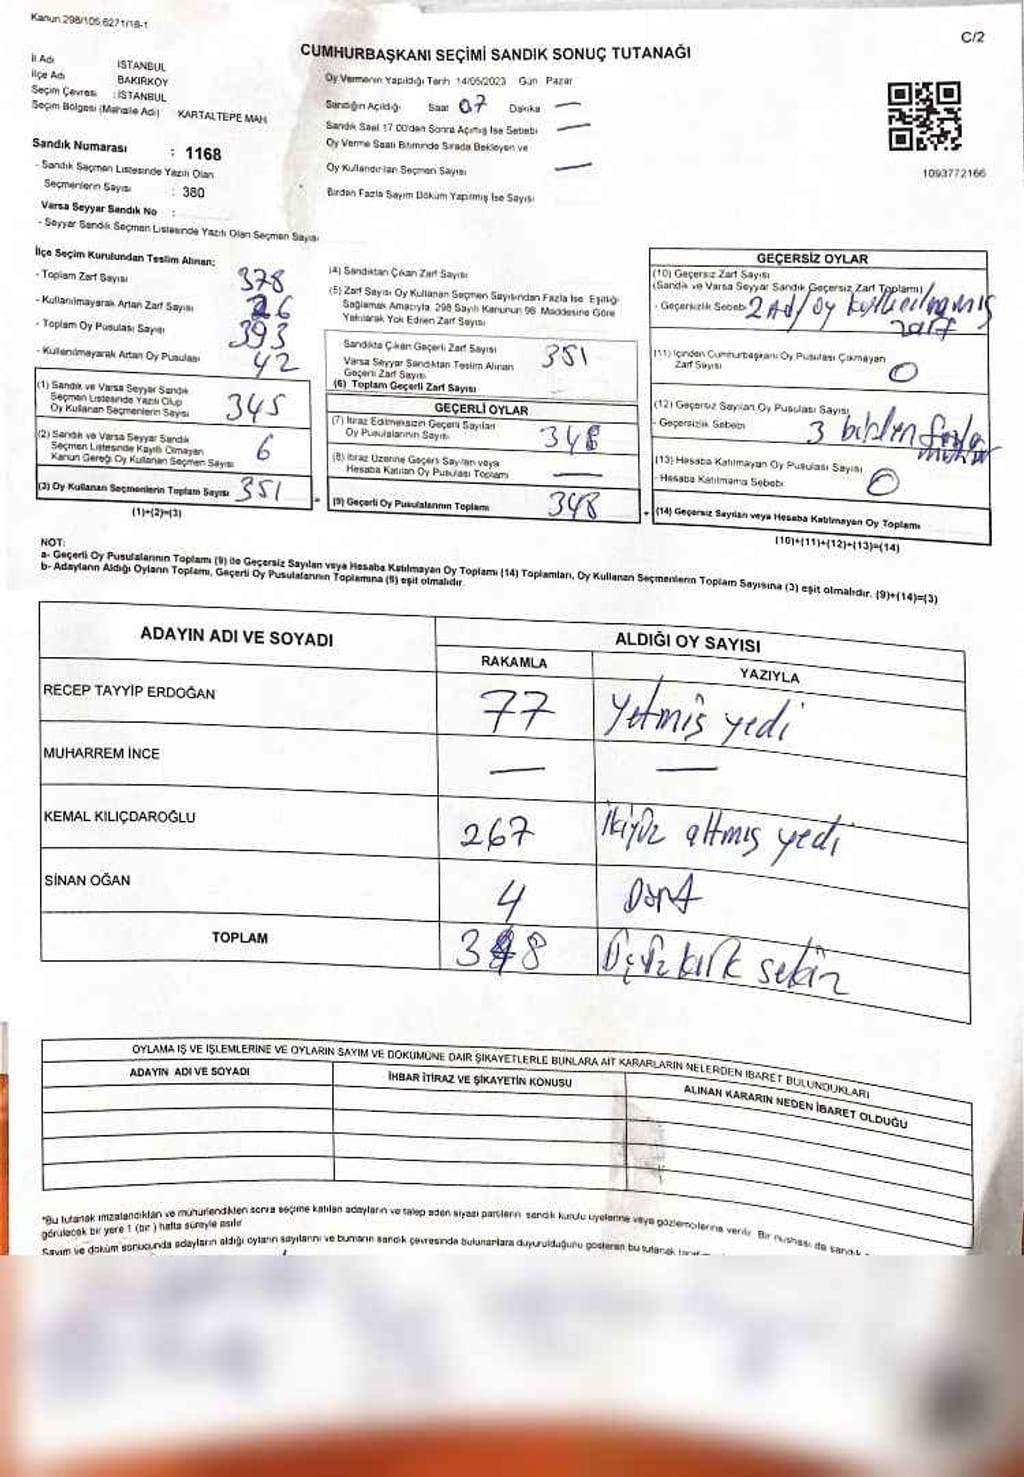 Kanun 298/105,6271/18-1
C/2
CUMHURBAŞKANI SEÇİMİ SANDIK SONUÇ TUTANAĞI
İl Adı İSTANBUL
İlçe Adı BAKIRKÖY
Seçim Çevresi : İSTANBUL
Seçim Bölgesi (Mahalle Adı) KARTALTEPE MAH
Oy Vermenin Yapıldığı Tarih 14/05/2023 Gün Pazar
Sandığın Açıldığı Saat 07 Dakika —
Sandık Saat 17.00'den Sonra Açılmış İse Sebebi —
Oy Verme Saati Bitiminde Sırada Bekleyen ve
Oy Kullandırılan Seçmen Sayısı —
Birden Fazla Sayım Döküm Yapılmış İse Sayısı
1093772166
Sandık Numarası : 1168
- Sandık Seçmen Listesinde Yazılı Olan
Seçmenlerin Sayısı : 380
Varsa Seyyar Sandık No :
- Seyyar Sandık Seçmen Listesinde Yazılı Olan Seçmen Sayısı
İlçe Seçim Kurulundan Teslim Alınan;
- Toplam Zarf Sayısı 378
- Kullanılmayarak Artan Zarf Sayısı 26
- Toplam Oy Pusulası Sayısı 393
- Kullanılmayarak Artan Oy Pusulası 42
(1) Sandık ve Varsa Seyyar Sandık
Seçmen Listesinde Yazılı Olup
Oy Kullanan Seçmenlerin Sayısı 345
(2) Sandık ve Varsa Seyyar Sandık
Seçmen Listesinde Kayıtlı Olmayan
Kanun Gereği Oy Kullanan Seçmen Sayısı 6
(3) Oy Kullanan Seçmenlerin Toplam Sayısı 351
(1)+(2)=(3)
(4) Sandıktan Çıkan Zarf Sayısı
(5) Zarf Sayısı Oy Kullanan Seçmen Sayısından Fazla İse Eşitliği
Sağlamak Amacıyla, 298 Sayılı Kanunun 98. Maddesine Göre
Yakılarak Yok Edilen Zarf Sayısı
Sandıkta Çıkan Geçerli Zarf Sayısı 351
Varsa Seyyar Sandıktan Teslim Alınan
Geçerli Zarf Sayısı
(6) Toplam Geçerli Zarf Sayısı
GEÇERLİ OYLAR
(7) İtiraz Edilmeksizin Geçerli Sayılan
Oy Pusulalarının Sayısı 348
(8) İtiraz Üzerine Geçerli Sayılan veya
Hesaba Katılan Oy Pusulası Toplamı —
= (9) Geçerli Oy Pusulalarının Toplamı 348
GEÇERSİZ OYLAR
(10) Geçersiz Zarf Sayısı
(Sandık ve Varsa Seyyar Sandık Geçersiz Zarf Toplamı)
- Geçersizlik Sebebi 2 Ad/oy kullanılmamış
zarf
(11) İçinden Cumhurbaşkanı Oy Pusulası Çıkmayan
Zarf Sayısı 0
(12) Geçersiz Sayılan Oy Pusulası Sayısı
- Geçersizlik Sebebi 3 birden fazla
mühür
(13) Hesaba Katılmayan Oy Pusulası Sayısı
- Hesaba Katılmama Sebebi 0
+ (14) Geçersiz Sayılan veya Hesaba Katılmayan Oy Toplamı
(10)+(11)+(12)+(13)=(14)
NOT:
a- Geçerli Oy Pusulalarının Toplamı (9) ile Geçersiz Sayılan veya Hesaba Katılmayan Oy Toplamı (14) Toplamları, Oy Kullanan Seçmenlerin Toplam Sayısına (3) eşit olmalıdır. (9)+(14)=(3)
b- Adayların Aldığı Oyların Toplamı, Geçerli Oy Pusulalarının Toplamına (9) eşit olmalıdır.
ADAYIN ADI VE SOYADI ALDIĞI OY SAYISI
RAKAMLA YAZIYLA
RECEP TAYYİP ERDOĞAN 77 Yetmiş yedi
MUHARREM İNCE — —
KEMAL KILIÇDAROĞLU 267 ikiyüz altmış yedi
SİNAN OĞAN 4 Dört
TOPLAM 348 Üçyüz kırk sekiz
OYLAMA İŞ VE İŞLEMLERİNE VE OYLARIN SAYIM VE DÖKÜMÜNE DAİR ŞİKAYETLERLE BUNLARA AİT KARARLARIN NELERDEN İBARET BULUNDUKLARI
ADAYIN ADI VE SOYADI İHBAR İTİRAZ VE ŞİKAYETİN KONUSU ALINAN KARARIN NEDEN İBARET OLDUĞU
*Bu tutanak imzalandıktan ve mühürlendikten sonra seçime katılan adayların ve talep eden siyasi partilerin sandık kurulu üyelerine veya gözlemcilerine verilir. Bir nüshası da sandık
görülecek bir yere 1 (bir) hafta süreyle asılır
Sayım ve döküm sonucunda adayların aldığı oyların sayılarını ve bunların sandık çevresinde bulunanlara duyurulduğunu gösteren bu tutanak